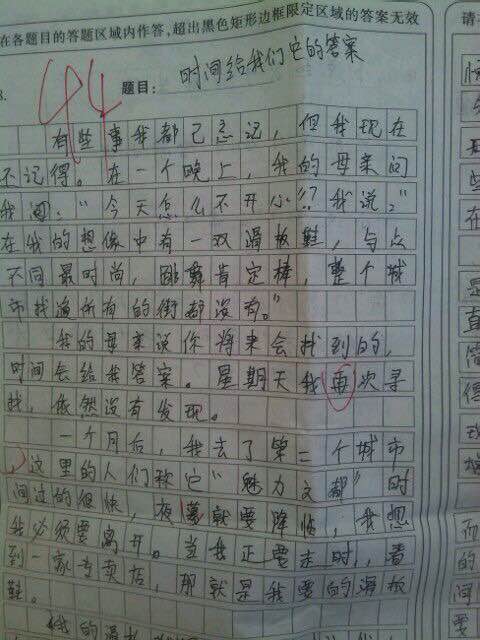 在各题目的答题区域内作答，超出黑色矩形边框限定区域的答案无效
44
题目：时间给我们它的答案
有些事我都已忘记，但我现在
不记得。在一个晚上，我的母亲问
我：“今天怎么不开心！？我说。”
在我的想像中有一双滑板鞋，与众
不同最时尚，跳舞肯定棒，整个城
市找遍所有的街都没有。”
我的母亲说你将来会找到的，
时间会给我答案。星期天我再次寻
找，依然没有发现。
一个月后，我去了第二个城市
，这里的人们称它“魅力之都”时
间过的很快，夜幕就要降临，我想
我必须要离开。当我正要走时，看
到一家专卖店，那就是我要的滑板
鞋。
我的滑板鞋